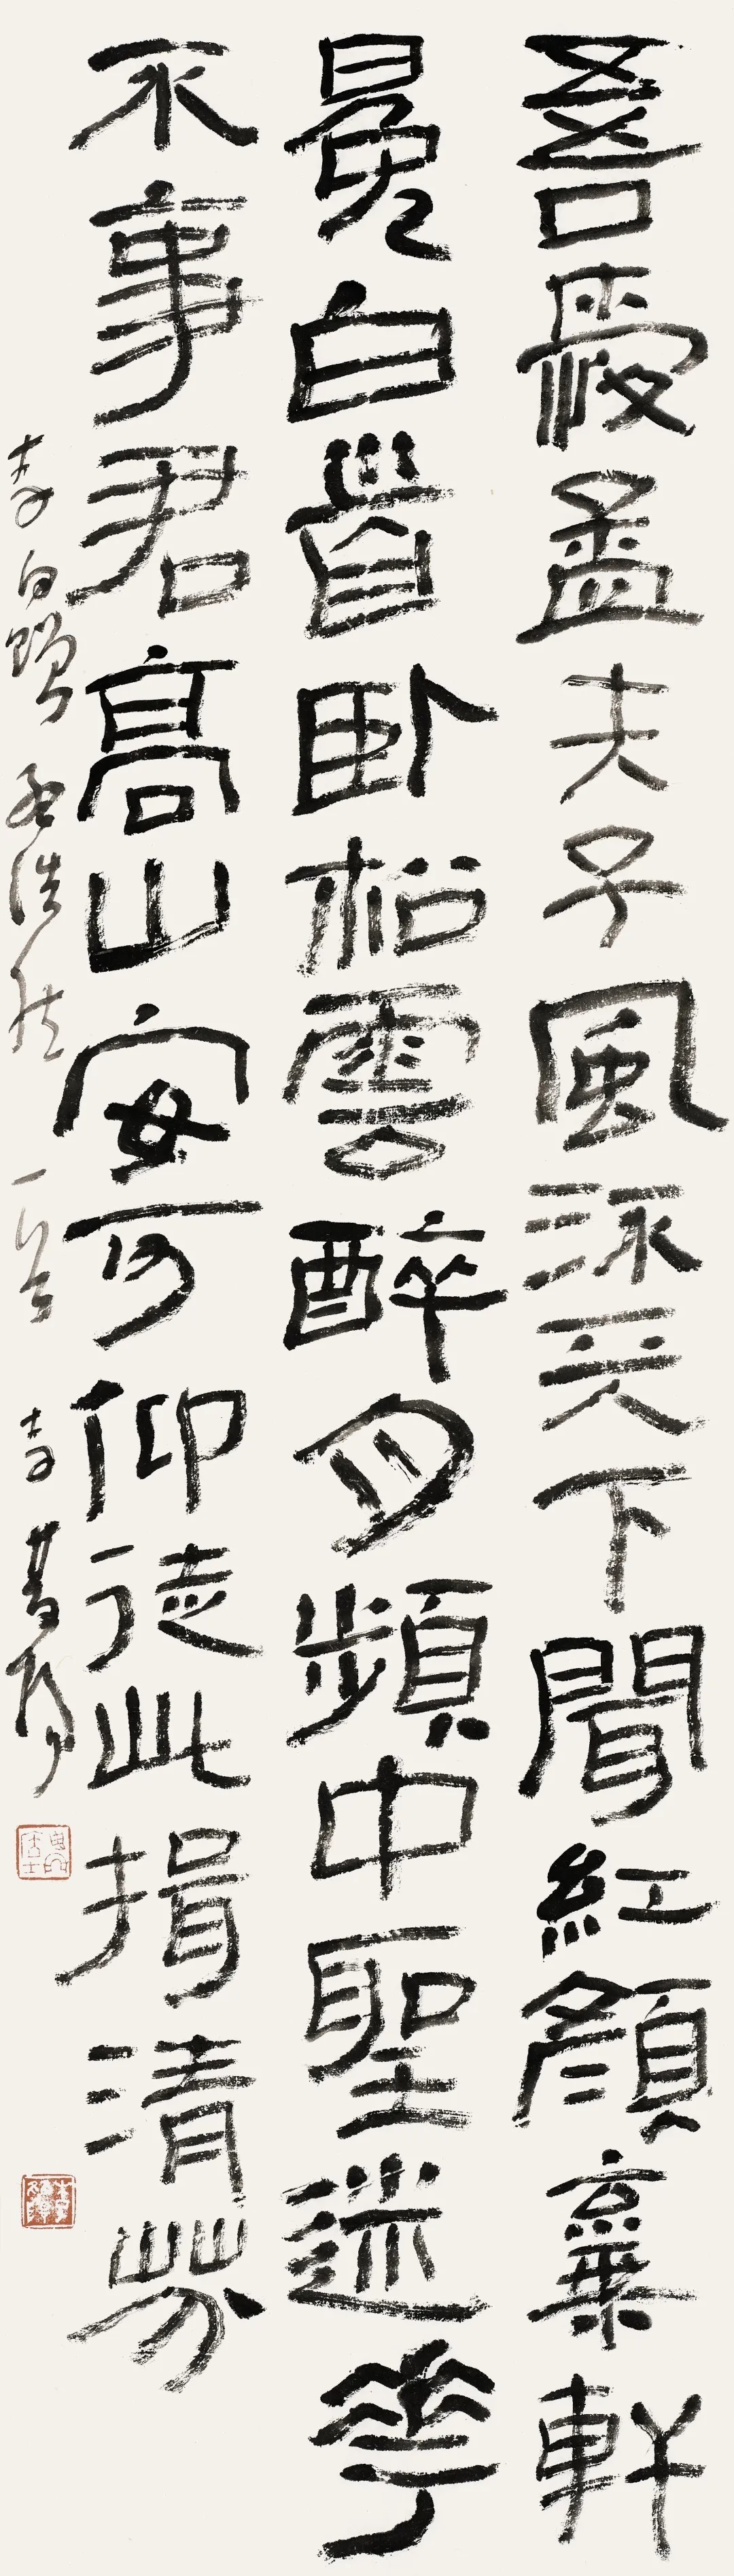 吾愛孟夫子風流天下聞紅顏棄軒
冕白首卧松雲醉月頻中聖迷花
不事君高山安可仰徒此揖清芬
李白贈孟浩然一首 李